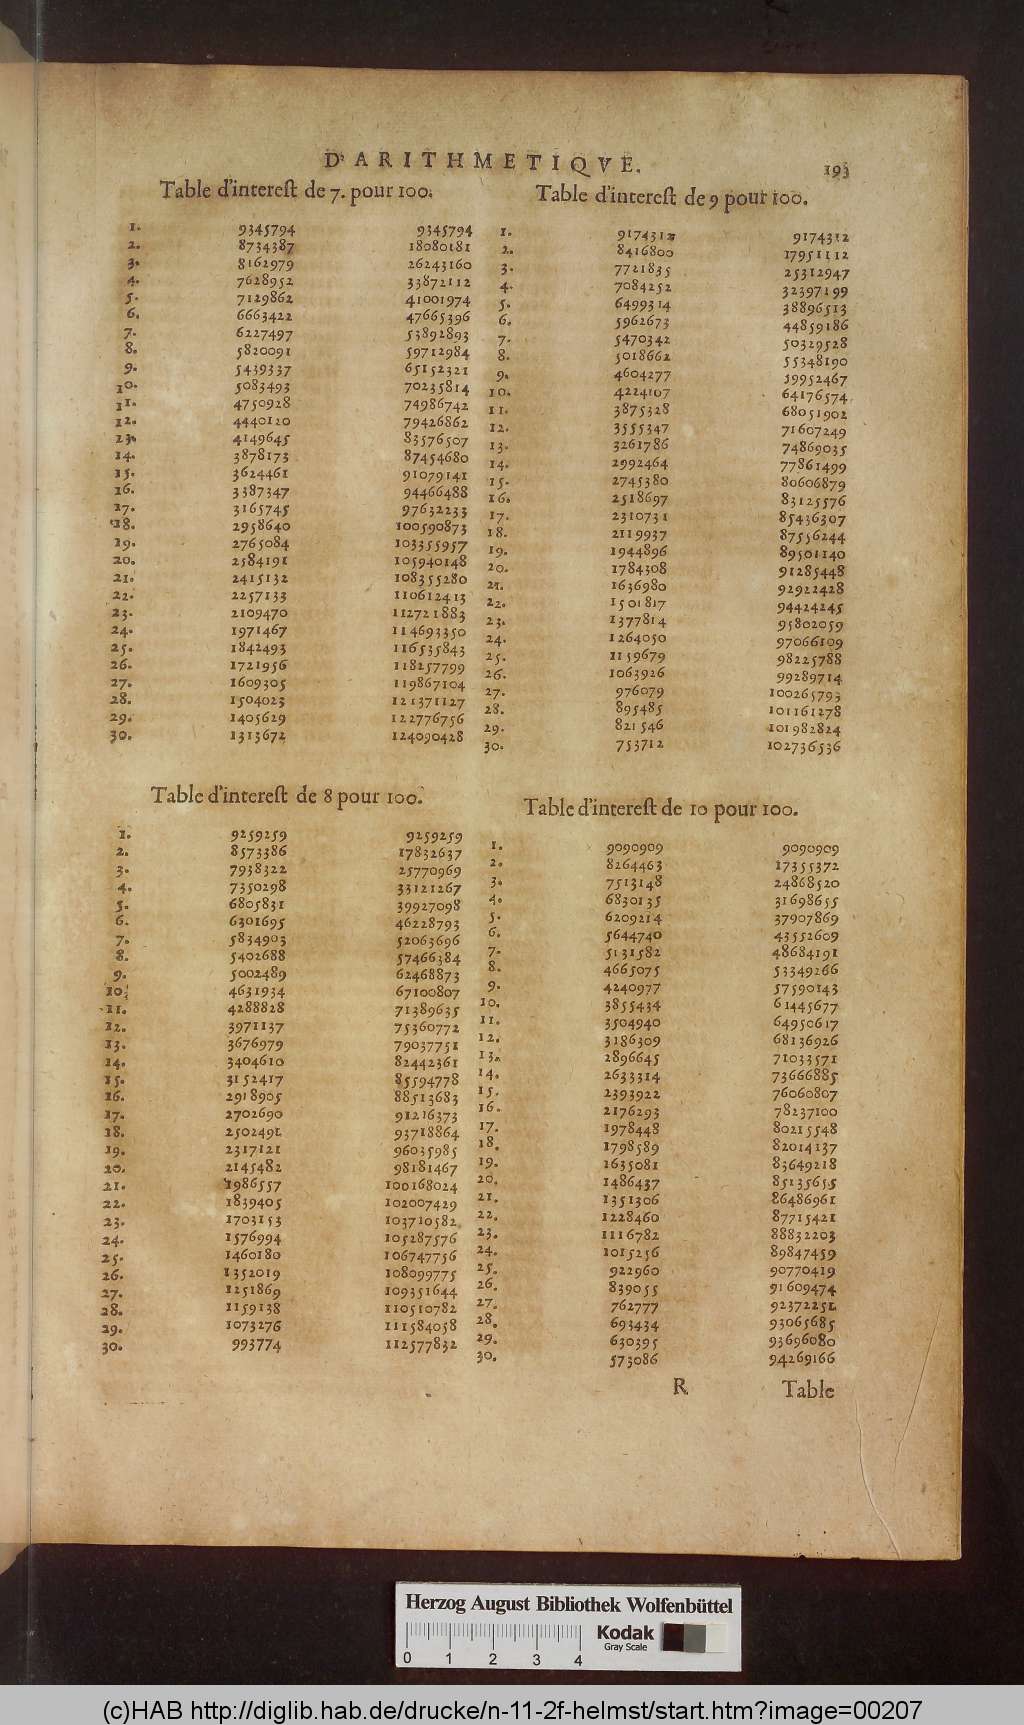 D'ARITHMETIQVE. 193
Table d'interest de 7. pour 100.
1. 9345794 9345794
2. 8734387 18080181
3. 8162979 26243160
4. 7628952 33872112
5. 7129862 41001974
6. 6663422 47665396
7. 6227497 53892893
8. 5820091 59712984
9. 5439337 65152321
10. 5083493 70235814
11. 4750928 74986742
12. 4440120 79426862
23. 4149645 83576507
14. 3878173 87454680
15. 3624461 91079141
16. 3387347 94466488
17. 3165745 97632233
18. 2958640 100590873
19. 2765084 103355957
20. 2584191 105940148
21. 2415132 108355280
22. 2257133 110612413
23. 2109470 112721883
24. 1971467 114693350
25. 1842493 116535843
26. 1721956 118257799
27. 1609305 119867104
28. 1504023 121371127
29. 1405629 122776756
30. 1313672 124090428
Table d'interest de 9 pour 100.
1. 9174312 9174312
2. 8416800 17951112
3. 7721835 25312947
4. 7084252 32397199
5. 6499314 38896513
6. 5962673 44859186
7. 5470342 50329528
8. 5018662 55348190
9. 4604277 59952467
10. 4224107 64176574
11. 3875328 68051902
12. 3555347 71607249
13. 3261786 74869035
14. 2992464 77861499
15. 2745380 80606879
16. 2518697 83125576
17. 2310731 85436307
18. 2119937 87556244
19. 1944896 89501140
20. 1784308 91285448
21. 1636980 92922428
22. 1501817 94424245
23. 1377814 95802059
24. 1264050 97066109
25. 1159679 98225788
26. 1063926 99289714
27. 976079 100265793
28. 895485 101161278
29. 821546 101982824
30. 753712 102736536
Table d'interest de 8 pour 100.
1. 9259259 9259259
2. 8573386 17832637
3. 7938322 25770969
4. 7350298 33121267
5. 6805831 39927098
6. 6301695 46228793
7. 5834903 52063696
8. 5402688 57466384
9. 5002489 62468873
10. 4631934 67100807
11. 4288828 71389635
12. 3971137 75360772
13. 3676979 79037751
14. 3404610 82442361
15. 3152417 85594778
16. 2918905 88513683
17. 2702690 91216373
18. 2502491 93718864
19. 2317121 96035985
20. 2145482 98181467
21. 1986557 100168024
22. 1839405 102007429
23. 1703153 103710582
24. 1576994 105287576
25. 1460180 106747756
26. 1352019 108099775
27. 1251869 109351644
28. 1159138 110510782
29. 1073276 111584058
30. 993774 112577832
Table d'interest de 10 pour 100.
1. 9090909 9090909
2. 8264463 17355372
3. 7513148 24868520
4. 6830135 31698655
5. 6209214 37907869
6. 5644740 43552609
7. 5131582 48684191
8. 4665075 53349266
9. 4240977 57590143
10. 3855434 61445677
11. 3504940 64950617
12. 3186309 68136926
13. 2896645 71033571
14. 2633314 73666885
15. 2393922 76060807
16. 2176293 78237100
17. 1978448 80215548
18. 1798589 82014137
19. 1635081 83649218
20. 1486437 85135655
21. 1351306 86486961
22. 1228460 87715421
23. 1116782 88832203
24. 1015256 89847459
25. 922960 90770419
26. 839055 91609474
27. 762777 92372251
28. 693434 93065685
29. 630395 93696080
30. 573086 94269166
R Table
Herzog August Bibliothek Wolfenbüttel
0 1 2 3 4
Kodak
Gray Scale
(c)HAB http://diglib.hab.de/drucke/n-11-2f-helmst/start.htm?image=00207